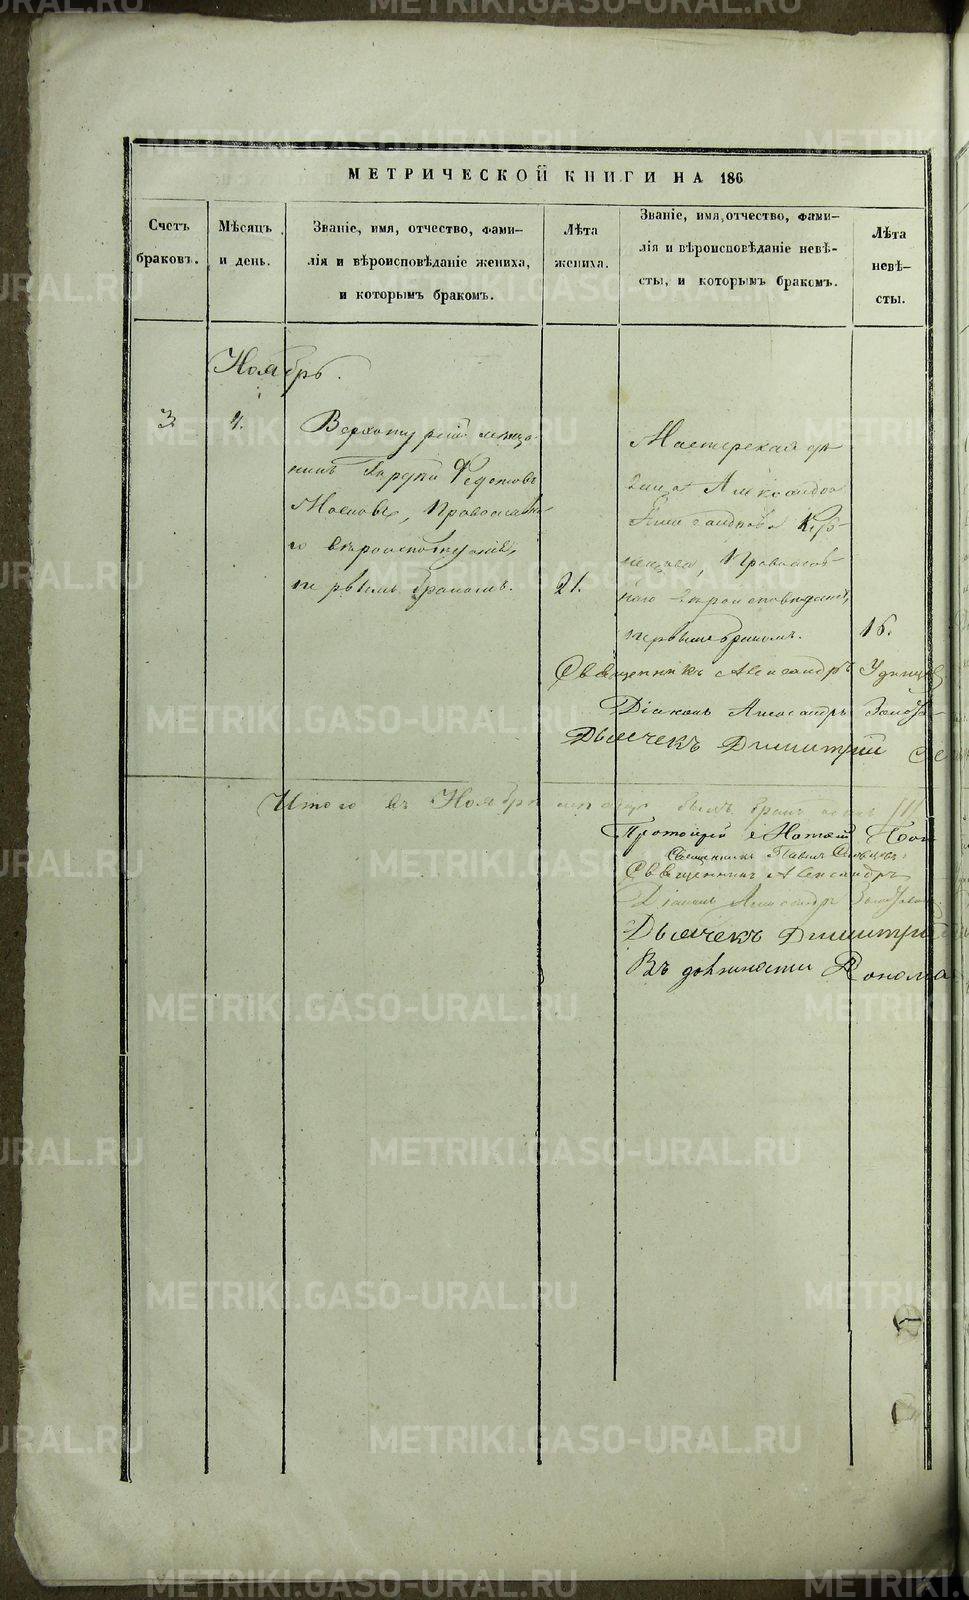 МЕТРИЧЕСКОЙ КНИГИ НА 186
Счетъ браковъ.
Мѣсяцъ и день.
Званіе, имя, отчество, фами-
лія и вѣроисповѣданіе жениха,
и которымъ бракомъ.
Лѣта жениха.
Званіе, имя, отчество, фами-
лія и вѣроисповѣданіе невѣ-
сты, и которымъ бракомъ.
Лѣта
невѣ-
сты.
Ноябрь.
3. 4.
Верхотурскій мѣща-
нинъ Федотовъ
Масловъ, Православна-
го вѣроисповѣданія,
первымъ бракомъ. 21.
Мастерская
Александра
Православ-
наго вѣроисповѣданія,
первымъ бракомъ. 16.
Священникъ Александръ Удинцев
Діаконъ Александръ
Дьячекъ Димитрій
Итого въ Ноябрѣ мѣсяцѣ
Протоіерей
Священникъ Павелъ
Священникъ Александръ
Діаконъ Александръ
Дьячекъ Димитрій
Въ должности Понома
METRIKI.GASO-URAL.RU